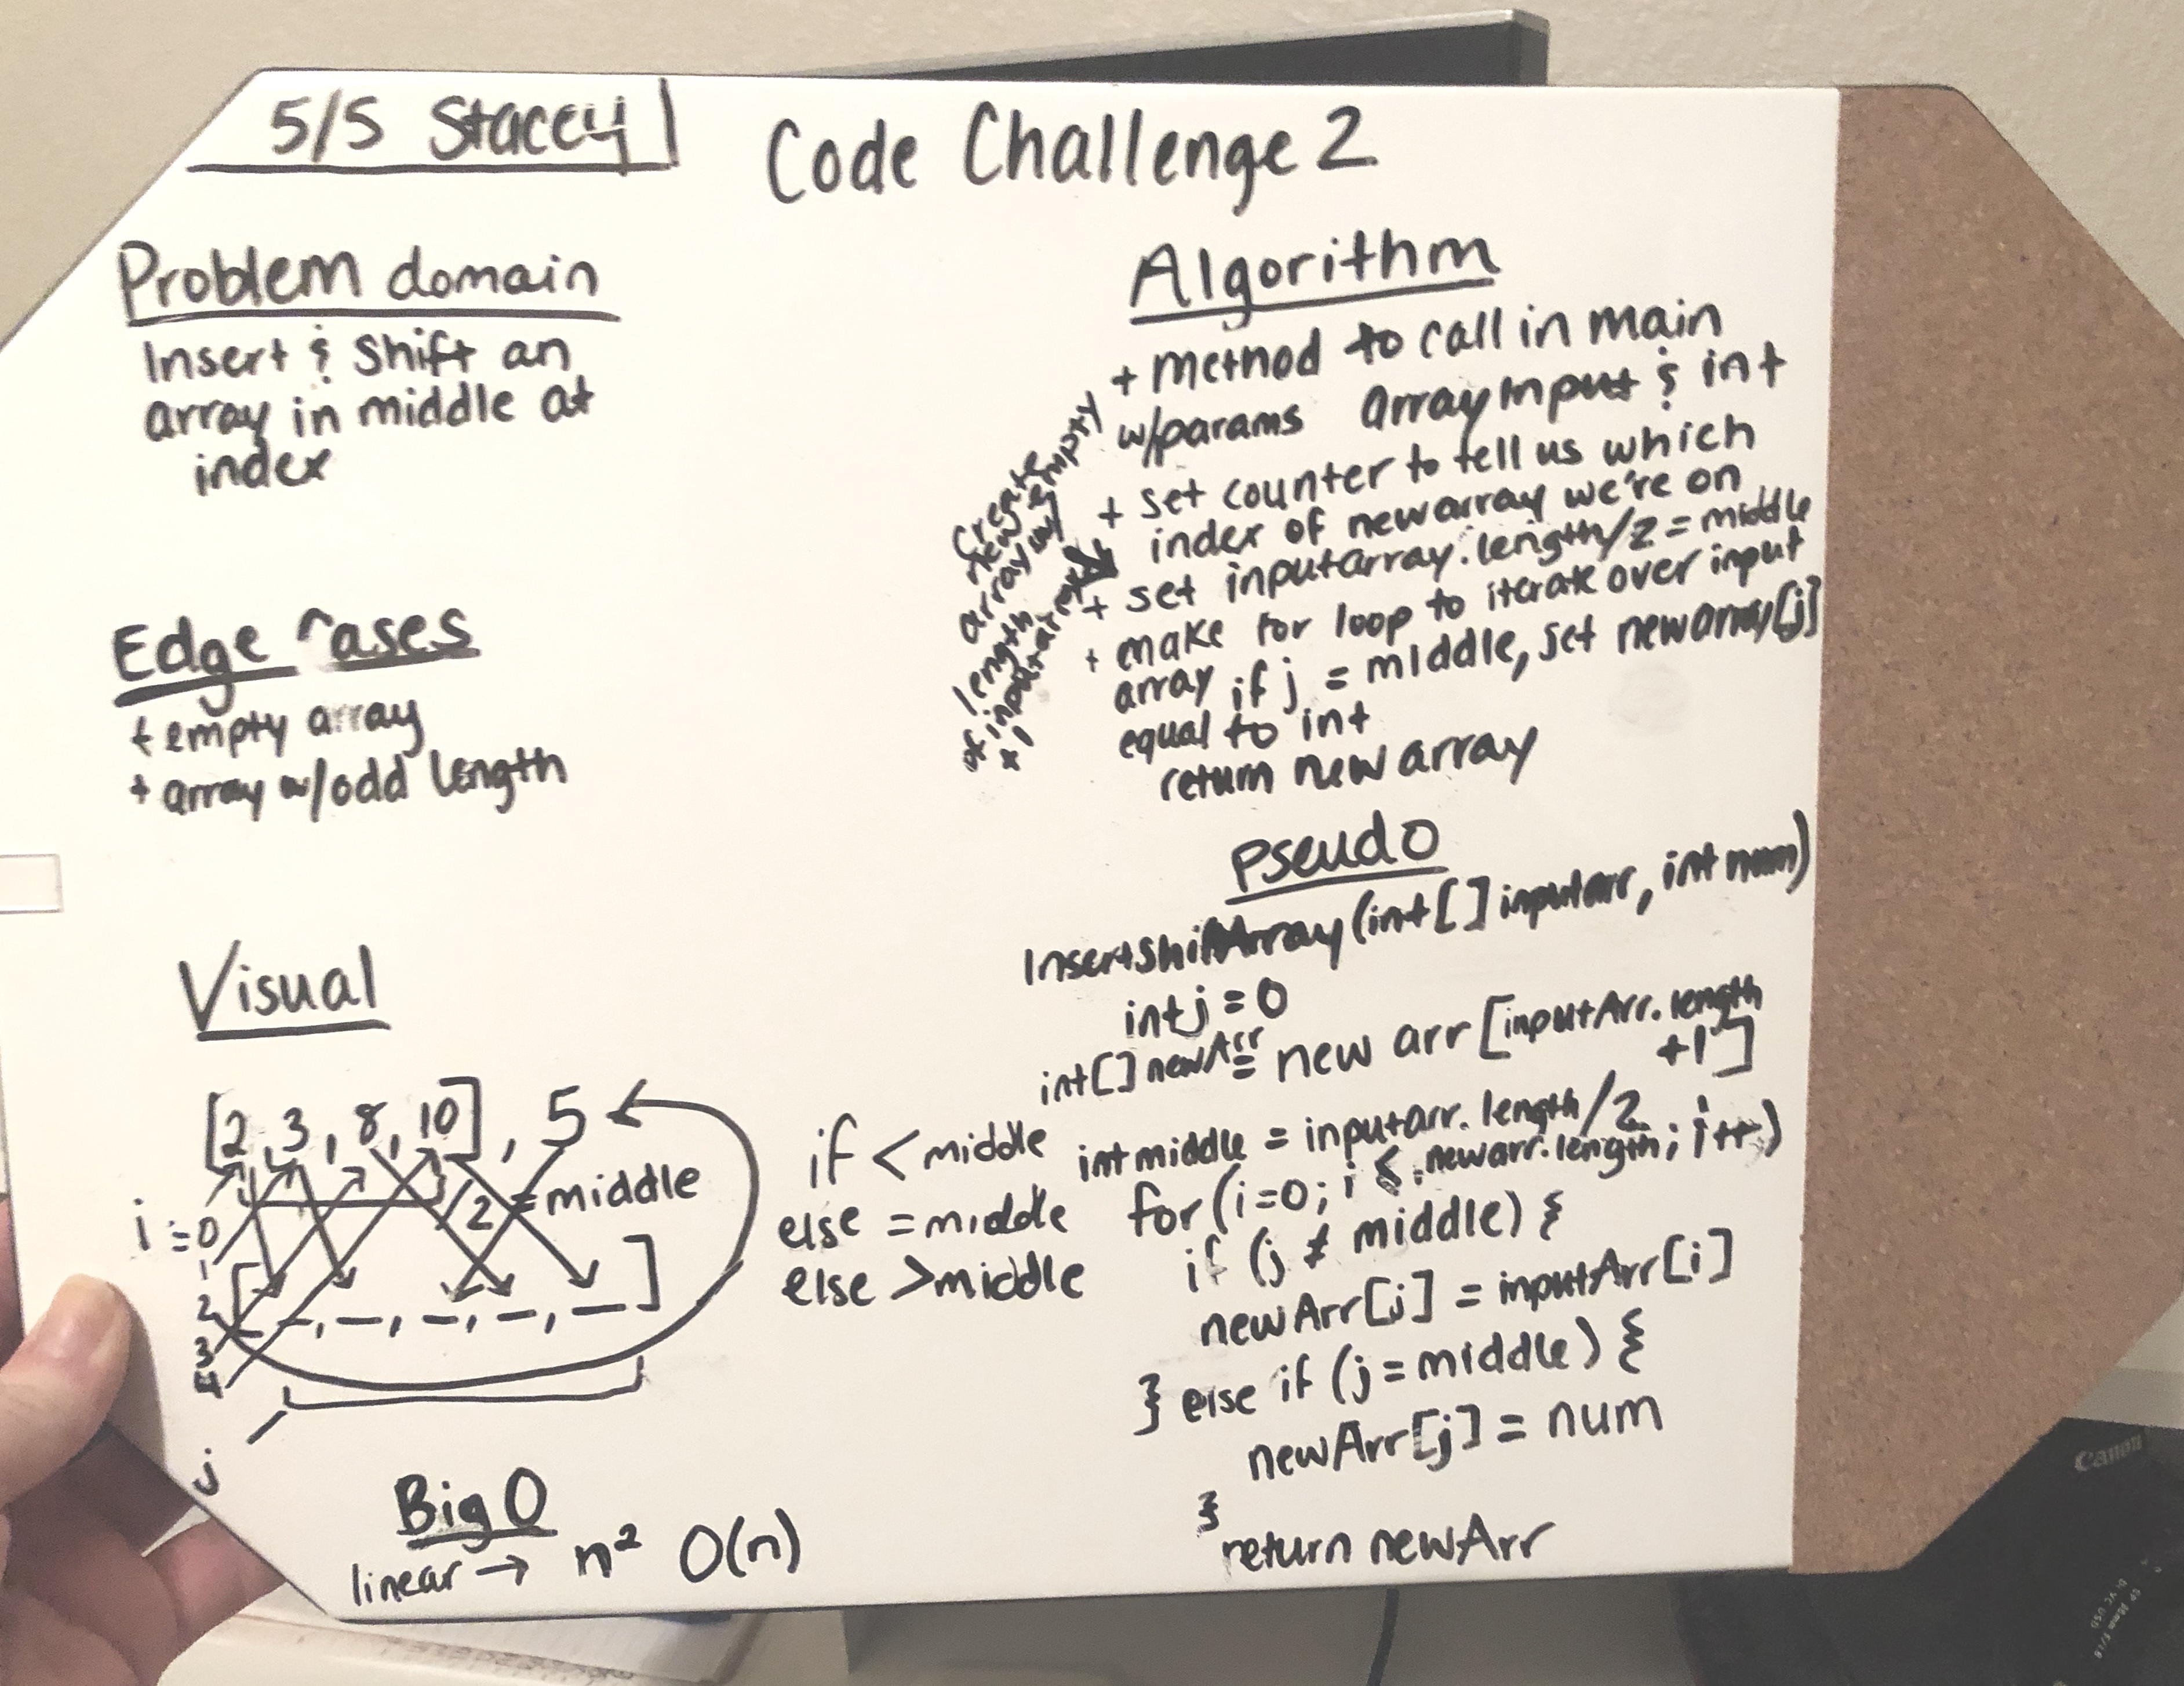 5/5 Stacey
Code Challenge 2
Problem domain
Insert & shift an
array in middle at
index
Edge Cases
+ empty array
+ array w/odd length
Visual
[2, 3, 8, 10], 5
/2 = middle
i = 0
1
2
3
4
[_, _, _, _, _]
j
Big O
linear → n² O(n)
Algorithm
+ method to call in main
w/params arrayInput & int
create
new empty
array w/
length
of inputarray
+1
+ set counter to tell us which
index of newarray we're on
+ set inputarray.length/2 = middle
+ make for loop to iterate over input
array if j = middle, set newarray[j]
equal to int
return new array
Pseudo
InsertShiftArray(int[] inputarr, int num)
int j = 0
int[] newArr = new arr[inputArr.length
+1]
int middle = inputarr.length/2
for (i=0; i < newarr.length; i++)
if < middle
else = middle
else > middle
if (j ≠ middle) {
newArr[j] = inputArr[i]
} else if (j = middle) {
newArr[j] = num
}
return newArr
Canon